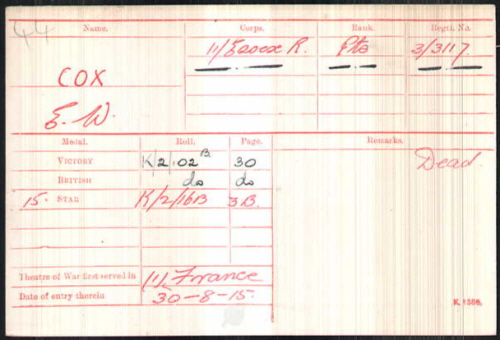 44
Name. Corps. Rank. Regtl. No.
11/Essex R. Pte 3/3117
COX
E. W.
Medal. Roll. Page. Remarks.
VICTORY K/2/102B 30 Dead.
BRITISH do do
15 STAR K/2/16B 3B.
Theatre of War first served in (1) France
Date of entry therein 30-8-15.
K. 1380.